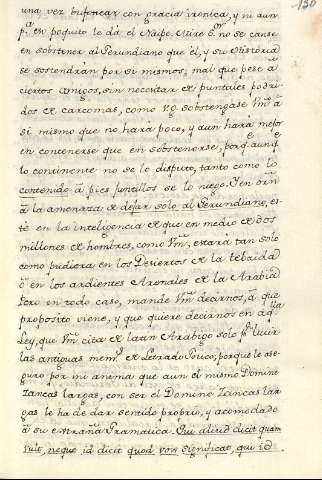 130
una vez bufonear con gracia ironica, y ni aun
pª. en poquito le dá el Naipe. Mire Vm. no se canse
en sobstener al Gerundiano que él, y su Historia
se sostendrán por sí mismos; mal que pese á
ciertos amigos, sin necesitar de puntales podri-
dos de carcomas, como Vd. sobstengase Vm. á
sí mismo que no hará poco, y aun hará mejor
en contenerse que en sobstenerse, porq. aunq.
lo continente no se lo disputo, tanto como lo
contenido á pies juntillos se lo niego. Y en orn.
á la amenaza de dejar solo al Gerundiano, es-
té en la inteligencia de que en medio de dos
millones de hombres, como Vm. estará tan solo
como pudiera en los Desiertos de la tebaida
ó en los ardientes Arenales de la Arabia
Pero en todo caso, mande Vm. decirnos, á que
proposito viene, y que quiere decirnos en aq.lla
Ley, que Vm. cita de laan Arabigo solo pª. lucir
las antiguas mem.s de Letrado porque le ase-
guro por mi anima que aun el mismo Domine
Zancas largas, con ser el Domine Zancas lar-
gas le ha de dar sentido proprio, y acomodado
á su estraña Gramatica. Qui aliud dicit quam
vult, neque id dicit quod vox significat, qui id